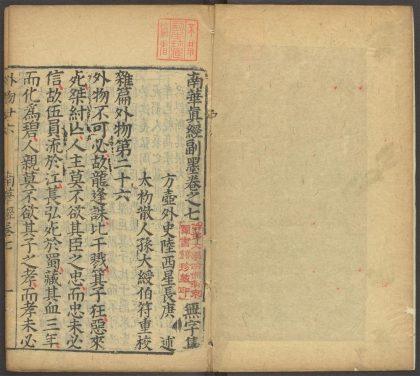 南華真經副墨卷之七
無字集
方壺外史陸西星長庚 述
太物散人孫大綬伯符重校
雜篇外物第二十六
外物不可必故龍逢誅比干戮箕子狂惡來
死桀紂亡人主莫不欲其臣之忠而忠未必
信故伍員流於江萇弘死於蜀藏其血三年
而化為碧人親莫不欲其子之孝而孝未必
外物廿六
南華經卷七
一